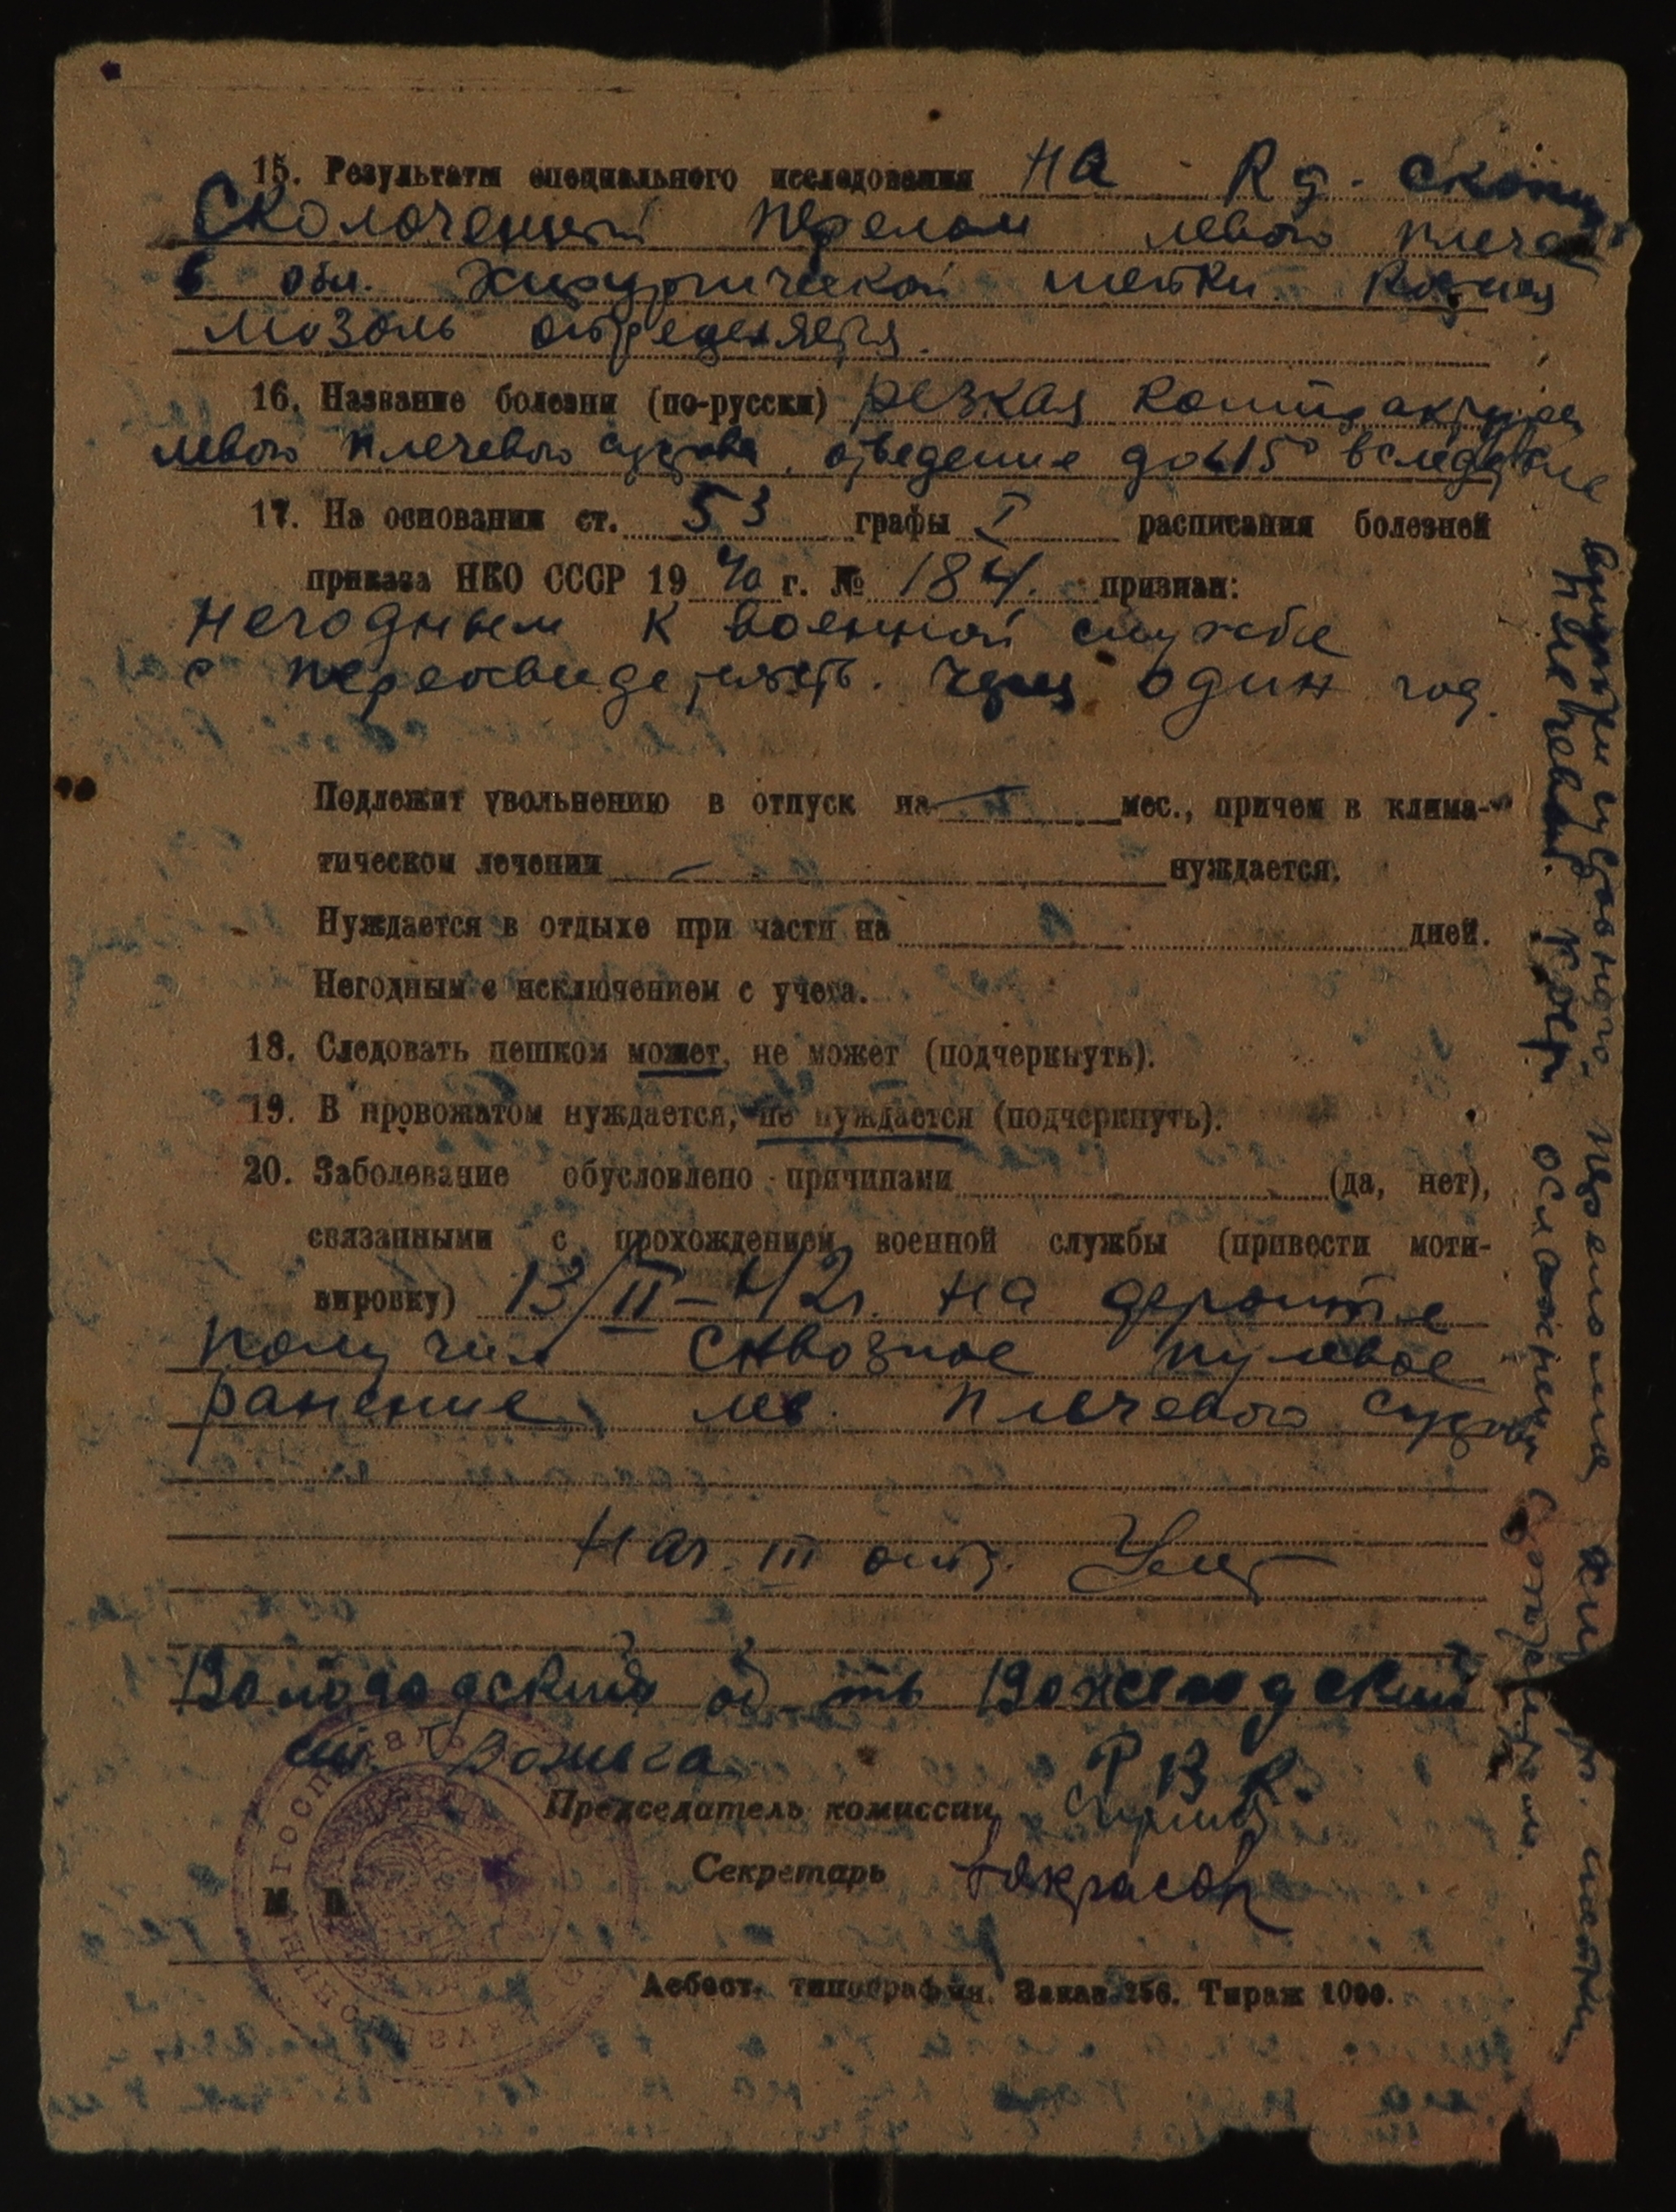 15. Результаты специального исследования на Rg. скопии
Сколоченный перелом левого плеча
в обл. Хирургической шейки Костная
мозоль определяется.
16. Название болезни (по-русски) резкая контрактура
левого плечевого сустава, отведение до 15° вследствие
внутри суставного перелома хир. шейки
плечевой. Кост. осложнен Остеомиелитом.
17. На основании ст. 53 графы I расписания болезней
приказа НКО СССР 1940 г. № 184. признан:
негодным к военной службе
с переосвидетельств. через один год.
Подлежит увольнению в отпуск на — мес., причем в клима-
тическом лечении — нуждается.
Нуждается в отдыхе при части на дней.
Негодным с исключением с учета.
18. Следовать пешком может, не может (подчеркнуть).
19. В провожатом нуждается, не нуждается (подчеркнуть).
20. Заболевание обусловлено причинами (да, нет),
связанными с прохождением военной службы (привести моти-
вировку) 13/II-42г. на фронте
получил сквозное пулевое
ранение лев. плечевого сустава
Нач. III отд.
Вологодский об-ть Вожегодский
ст. Вожега Р В К.
Председатель комиссии
Секретарь
М. П.
Асбест. типография. Заказ 256. Тираж 1000.